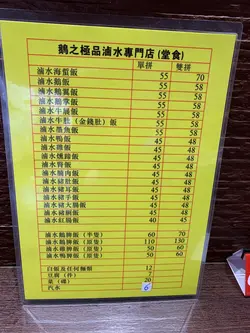 鵝之極品滷水專門店 (堂食)
單拼 雙拼
滷水海蜇飯 55 70
滷水鵝飯 55 58
滷水鵝翼飯 55 58
滷水鵝掌飯 55 58
滷水牛𦟌飯 55 58
滷水牛肚 (金錢肚) 飯 55 58
滷水墨魚飯 55 58
滷水鴨飯 45 48
滷水雞飯 45 48
滷水燻蹄飯 45 48
滷水腎飯 45 48
滷水腩肉飯 45 48
滷水豬肚飯 45 48
滷水豬耳飯 45 48
滷水豬手飯 45 48
滷水豬大腸飯 45 48
滷水豬脷飯 45 48
滷水紅腸飯 40 45
滷水鵝髀飯 (半隻) 60 70
滷水鵝髀飯 (原隻) 110 130
滷水雞髀飯 (原隻) 50 60
滷水鴨髀飯 (原隻) 50 60
白飯及任何麵類 12
豆腐 (件) 7
菜 (碟) 20
汽水 6